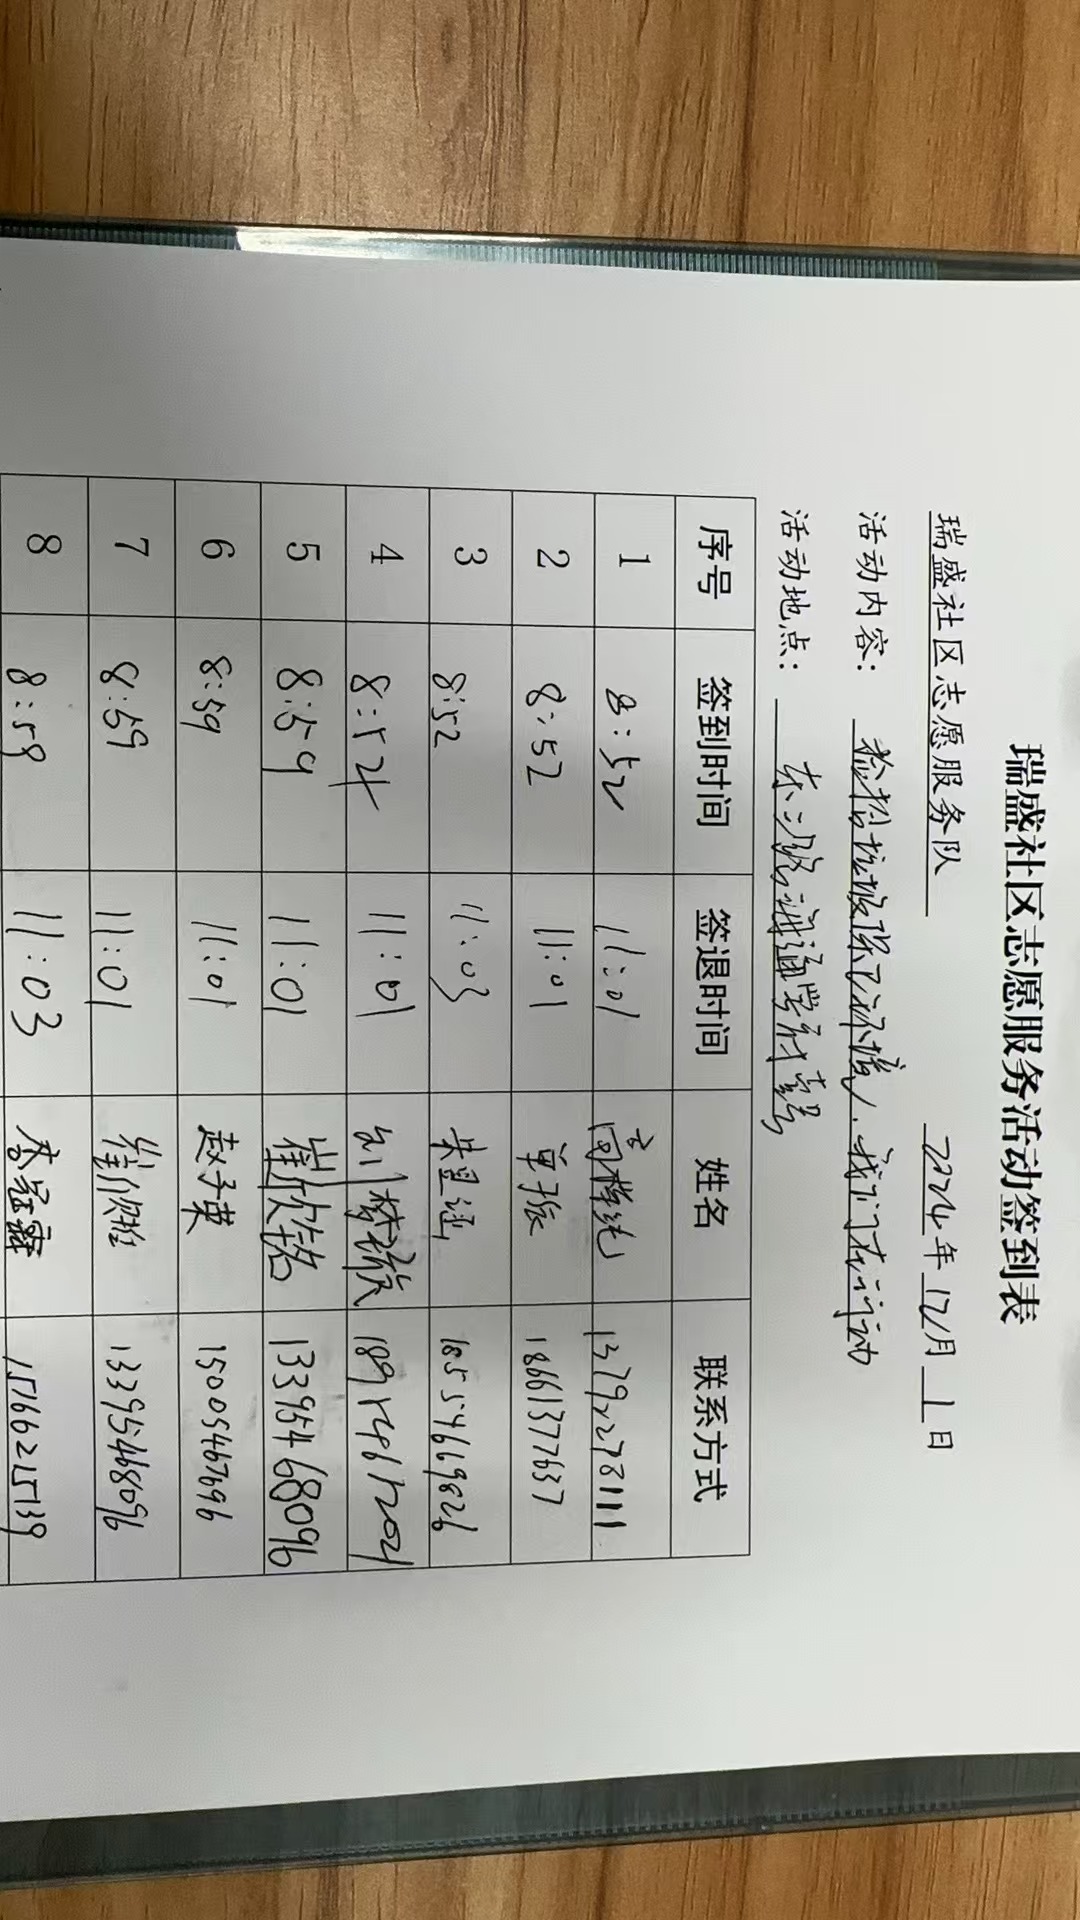 瑞盛社区志愿服务活动签到表
瑞盛社区志愿服务队 2024年12月1日
活动内容: 捡拾垃圾保卫环境,我们在行动
活动地点: 东二路
序号 签到时间 签退时间 姓名 联系方式
1 8:52 11:01 13792278111
2 8:52 11:01 单振 18661377637
3 8:52 11:03 18554669826
4 8:54 11:01 刘梦璇
5 8:59 11:01 崔欣铭 13395468096
6 8:59 11:01 赵子英 15005467696
7 8:59 11:01 13395468096
8 8:59 11:03 李冠霖 15166215139